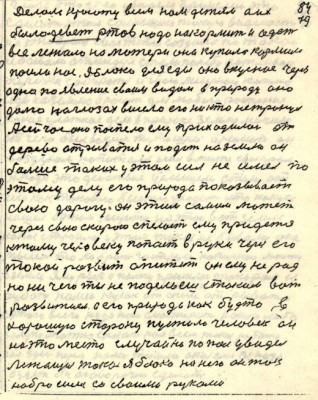 Делом красоту всем нам детям а их 84
было девет ртов надо накормит и одет 79
все лежало на матери она купала кормила
поила нас. Яблоко для еды оно вкусное через
одно появление своим видом в природе оно
долго на глазах висело его никто не тронул
А сейчас оно поспело ему приходилос от
дерево отриватся и подат на землю он
болше таких у этом сил не имел по
этому делу его природа показывает
свою дорогу. он этим самим может
через свою скорою спелост ему придется
к тому человеку попаст в руки через его
такой развит апетит он ему не рад
но ни чего ти не поделаеш с таким вот
развитием его природе как будто в
хорошую сторону пустила человек он
на это место случайно попал увидел
лежащия тока яблока на него он тож
набросился со своими руками